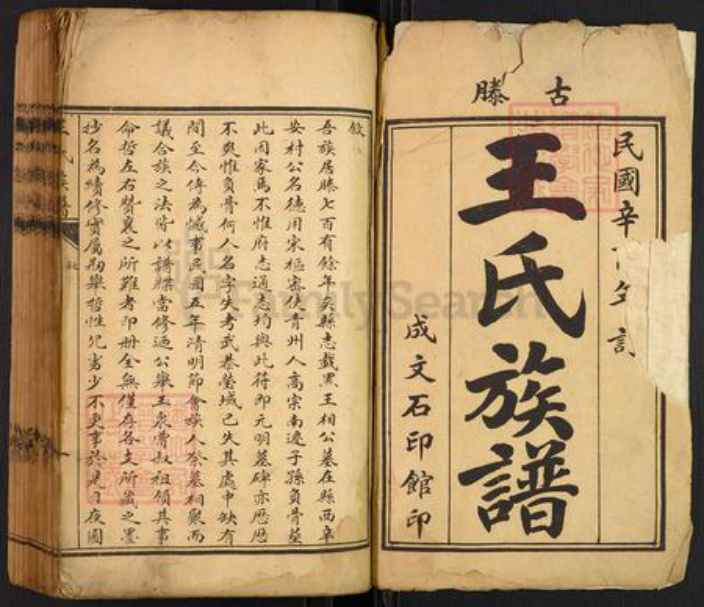 古滕
民國辛
王氏族譜
成文石印館印
敘
吾族居滕七百有餘年矣縣志載黑王相公墓在縣西辛
安村公名德用宋樞密使青州人高宗南遷子孫負骨塟
此因家焉不惟府志通志均與此符即元明墓碑亦歷歷
不爽惟負骨何人名字失考武恭塋域已失其處中缺有
間至今傳為憾事民國五年清明節會族人祭墓相聚而
議合族之法皆以譜牒當修迺公舉玉衷儒叔祖領其事
命哲左右贊襄之所難者即册全無僅存各支所藏之墨
抄名為續修實屬剏舉哲性兒劣少不更事於是日夜圖
王氏族譜
FamilySearch